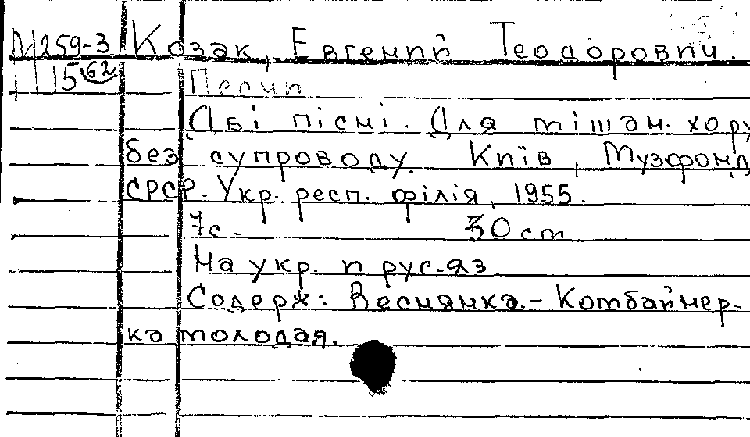 М 259-3 Козак, Евгений Теодорович.
15 62 Песни
Дві пісні. Для мішан. хору
без супроводу. Київ, Музфонд
СРСР. Укр. респ. філія, 1955.
7с. 30 см
На укр. и рус. яз
Содерж: Веснянка. - Комбайнер-
ка молодая.